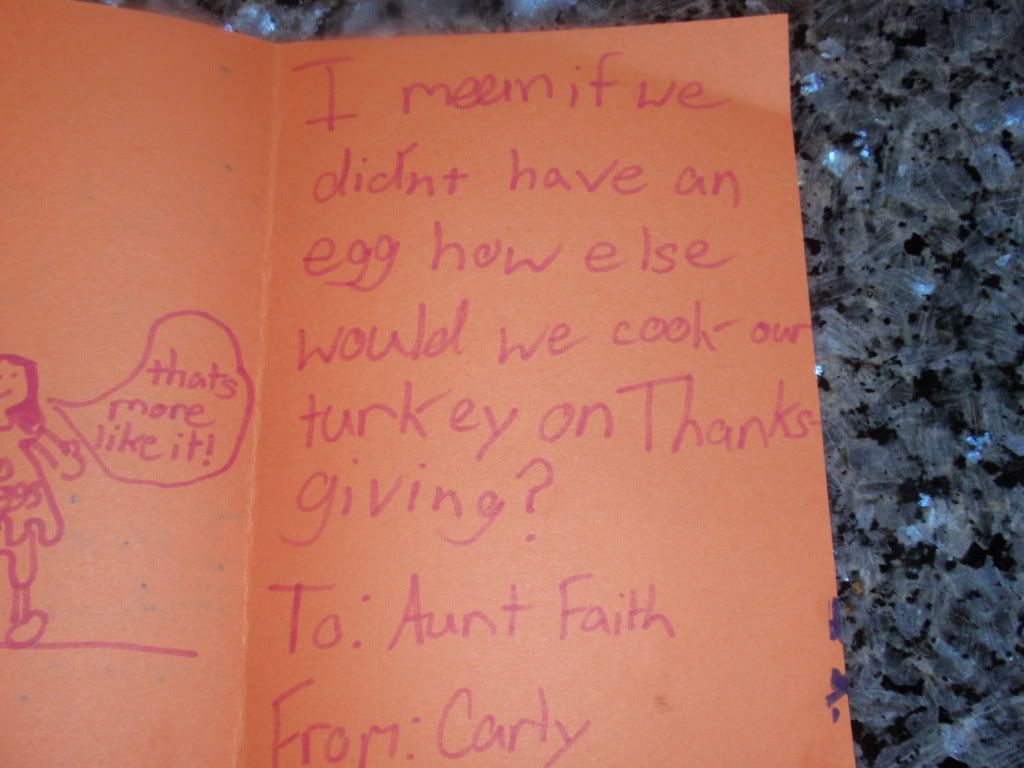 thats
more
like it!
I meem if we
didn't have an
egg how else
would we cook our
turkey on Thanks-
giving?
To: Aunt Faith
From: Carly